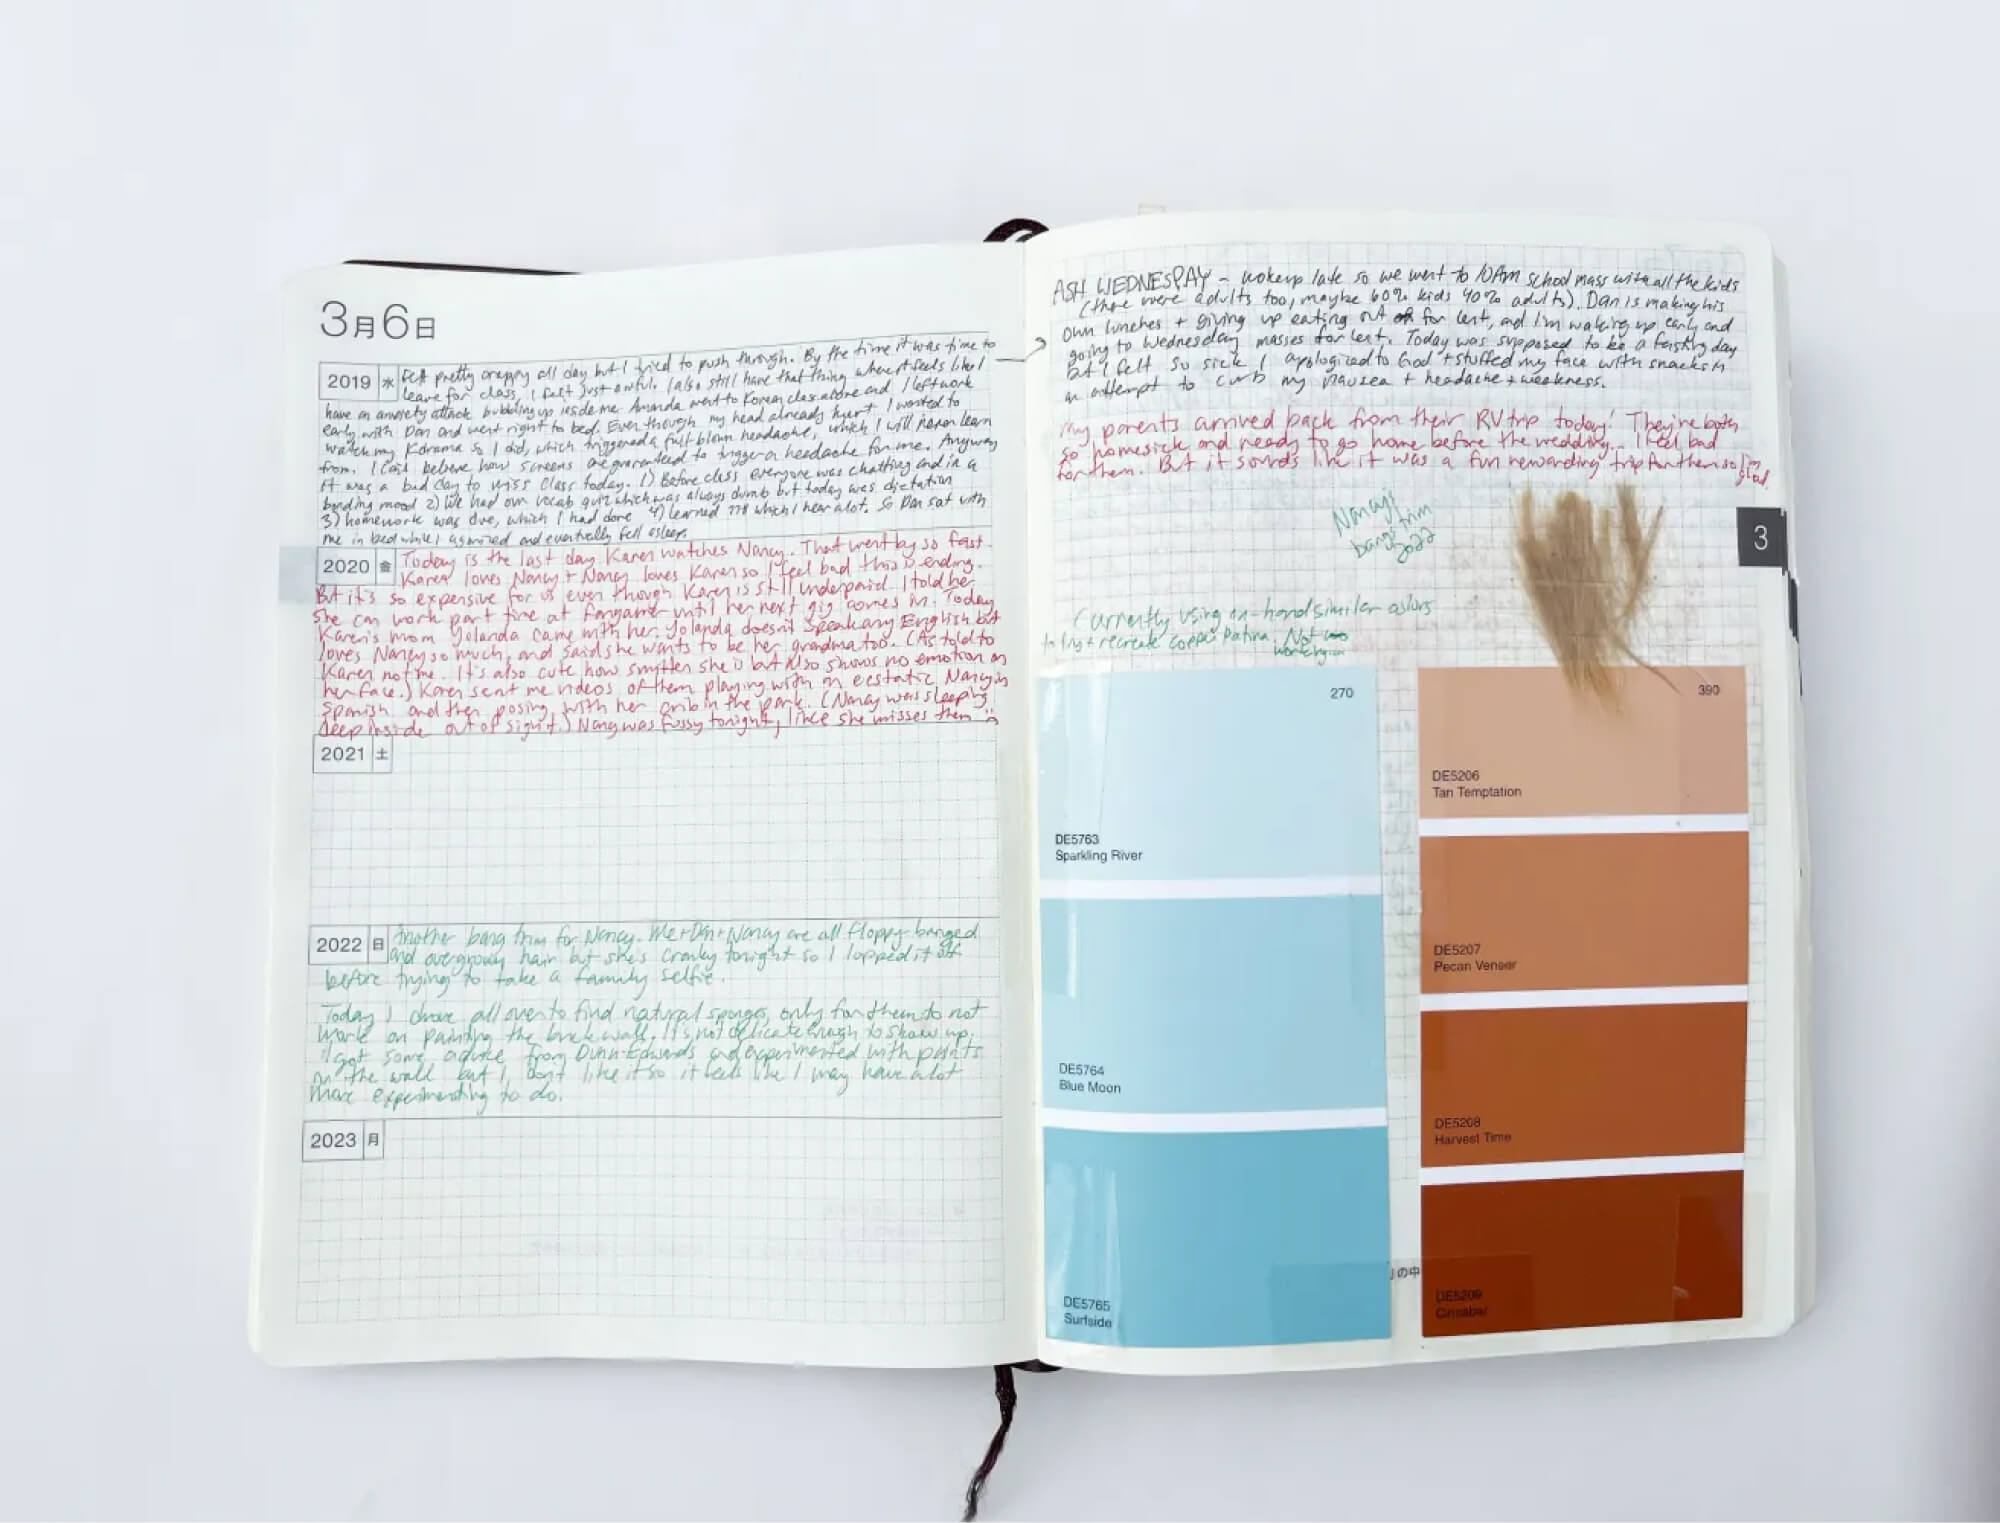 3月6日
2019 水 Felt pretty crappy all day but I tried to push through. By the time it was time to
leave for class, I felt just awful. I also still have that thing where it feels like I
have an anxiety attack bubbling up inside me. Amanda went to Korean class alone and I left work
early with Dan and went right to bed. Even though my head already hurt I wanted to
watch my Kdrama so I did, which triggered a full blown headache, which I will never learn
from. I can't believe how screens are guaranteed to trigger a headache for me. Anyway
it was a bad day to miss class today. 1) Before class everyone was chatting and in a
bonding mood 2) We had our vocab quiz which was always dumb but today was dictation
3) homework was due, which I had done 4) learned which I hear a lot. So Dan sat with
me in bed while I agonized and eventually fell asleep.
2020 金 Today is the last day Karen watches Nancy. That went by so fast.
Karen loves Nancy + Nancy loves Karen so I feel bad this is ending.
But it's so expensive for us even though Karen is still underpaid. I told her
she can work part time at Fangamer until her next gig comes in. Today
Karen's mom Yolanda came with her. Yolanda doesn't speak any English but
loves Nancy so much, and said she wants to be her grandma too. (As told to
Karen not me. It's also cute how smitten she is but also shows no emotion on
her face.) Karen sent me videos of them playing with an ecstatic Nancy in
Spanish and then posing with her crib in the park. (Nancy was sleeping
deep inside out of sight.) Nancy was fussy tonight, like she misses them
2021 土
2022 日 Another bang trim for Nancy. Me+Dan+Nancy are all floppy-banged
and overgrown hair but she's cranky tonight so I lopped it off
before trying to take a family selfie.
Today I drove all over to find natural sponges, only for them to not
work on painting the brick wall. It's not delicate enough to show up.
I got some advice from Dunn-Edwards and experimented with paints
on the wall but I don't like it so it feels like I may have a lot
more experimenting to do.
2023 月
ASH WEDNESDAY - woke up late so we went to 10AM school mass with all the kids
(there were adults too, maybe 60% kids 40% adults). Dan is making his
own lunches + giving up eating out for lent, and I'm waking up early and
going to Wednesday masses for lent. Today was supposed to be a fasting day
but I felt so sick I apologized to God + stuffed my face with snacks in
an attempt to curb my nausea + headache + weakness.
My parents arrived back from their RV trip today! They're both
so homesick and ready to go home before the wedding... I feel bad
for them. But it sounds like it was a fun rewarding trip for them so I'm
glad.
Nancy's
bangs trim
2022
3
Currently using on-hand similar colors
to try + recreate copper patina. Not
working
270
DE5763
Sparkling River
DE5764
Blue Moon
DE5765
Surfside
390
DE5206
Tan Temptation
DE5207
Pecan Veneer
DE5208
Harvest Time
DE5209
Cinnabar
の中